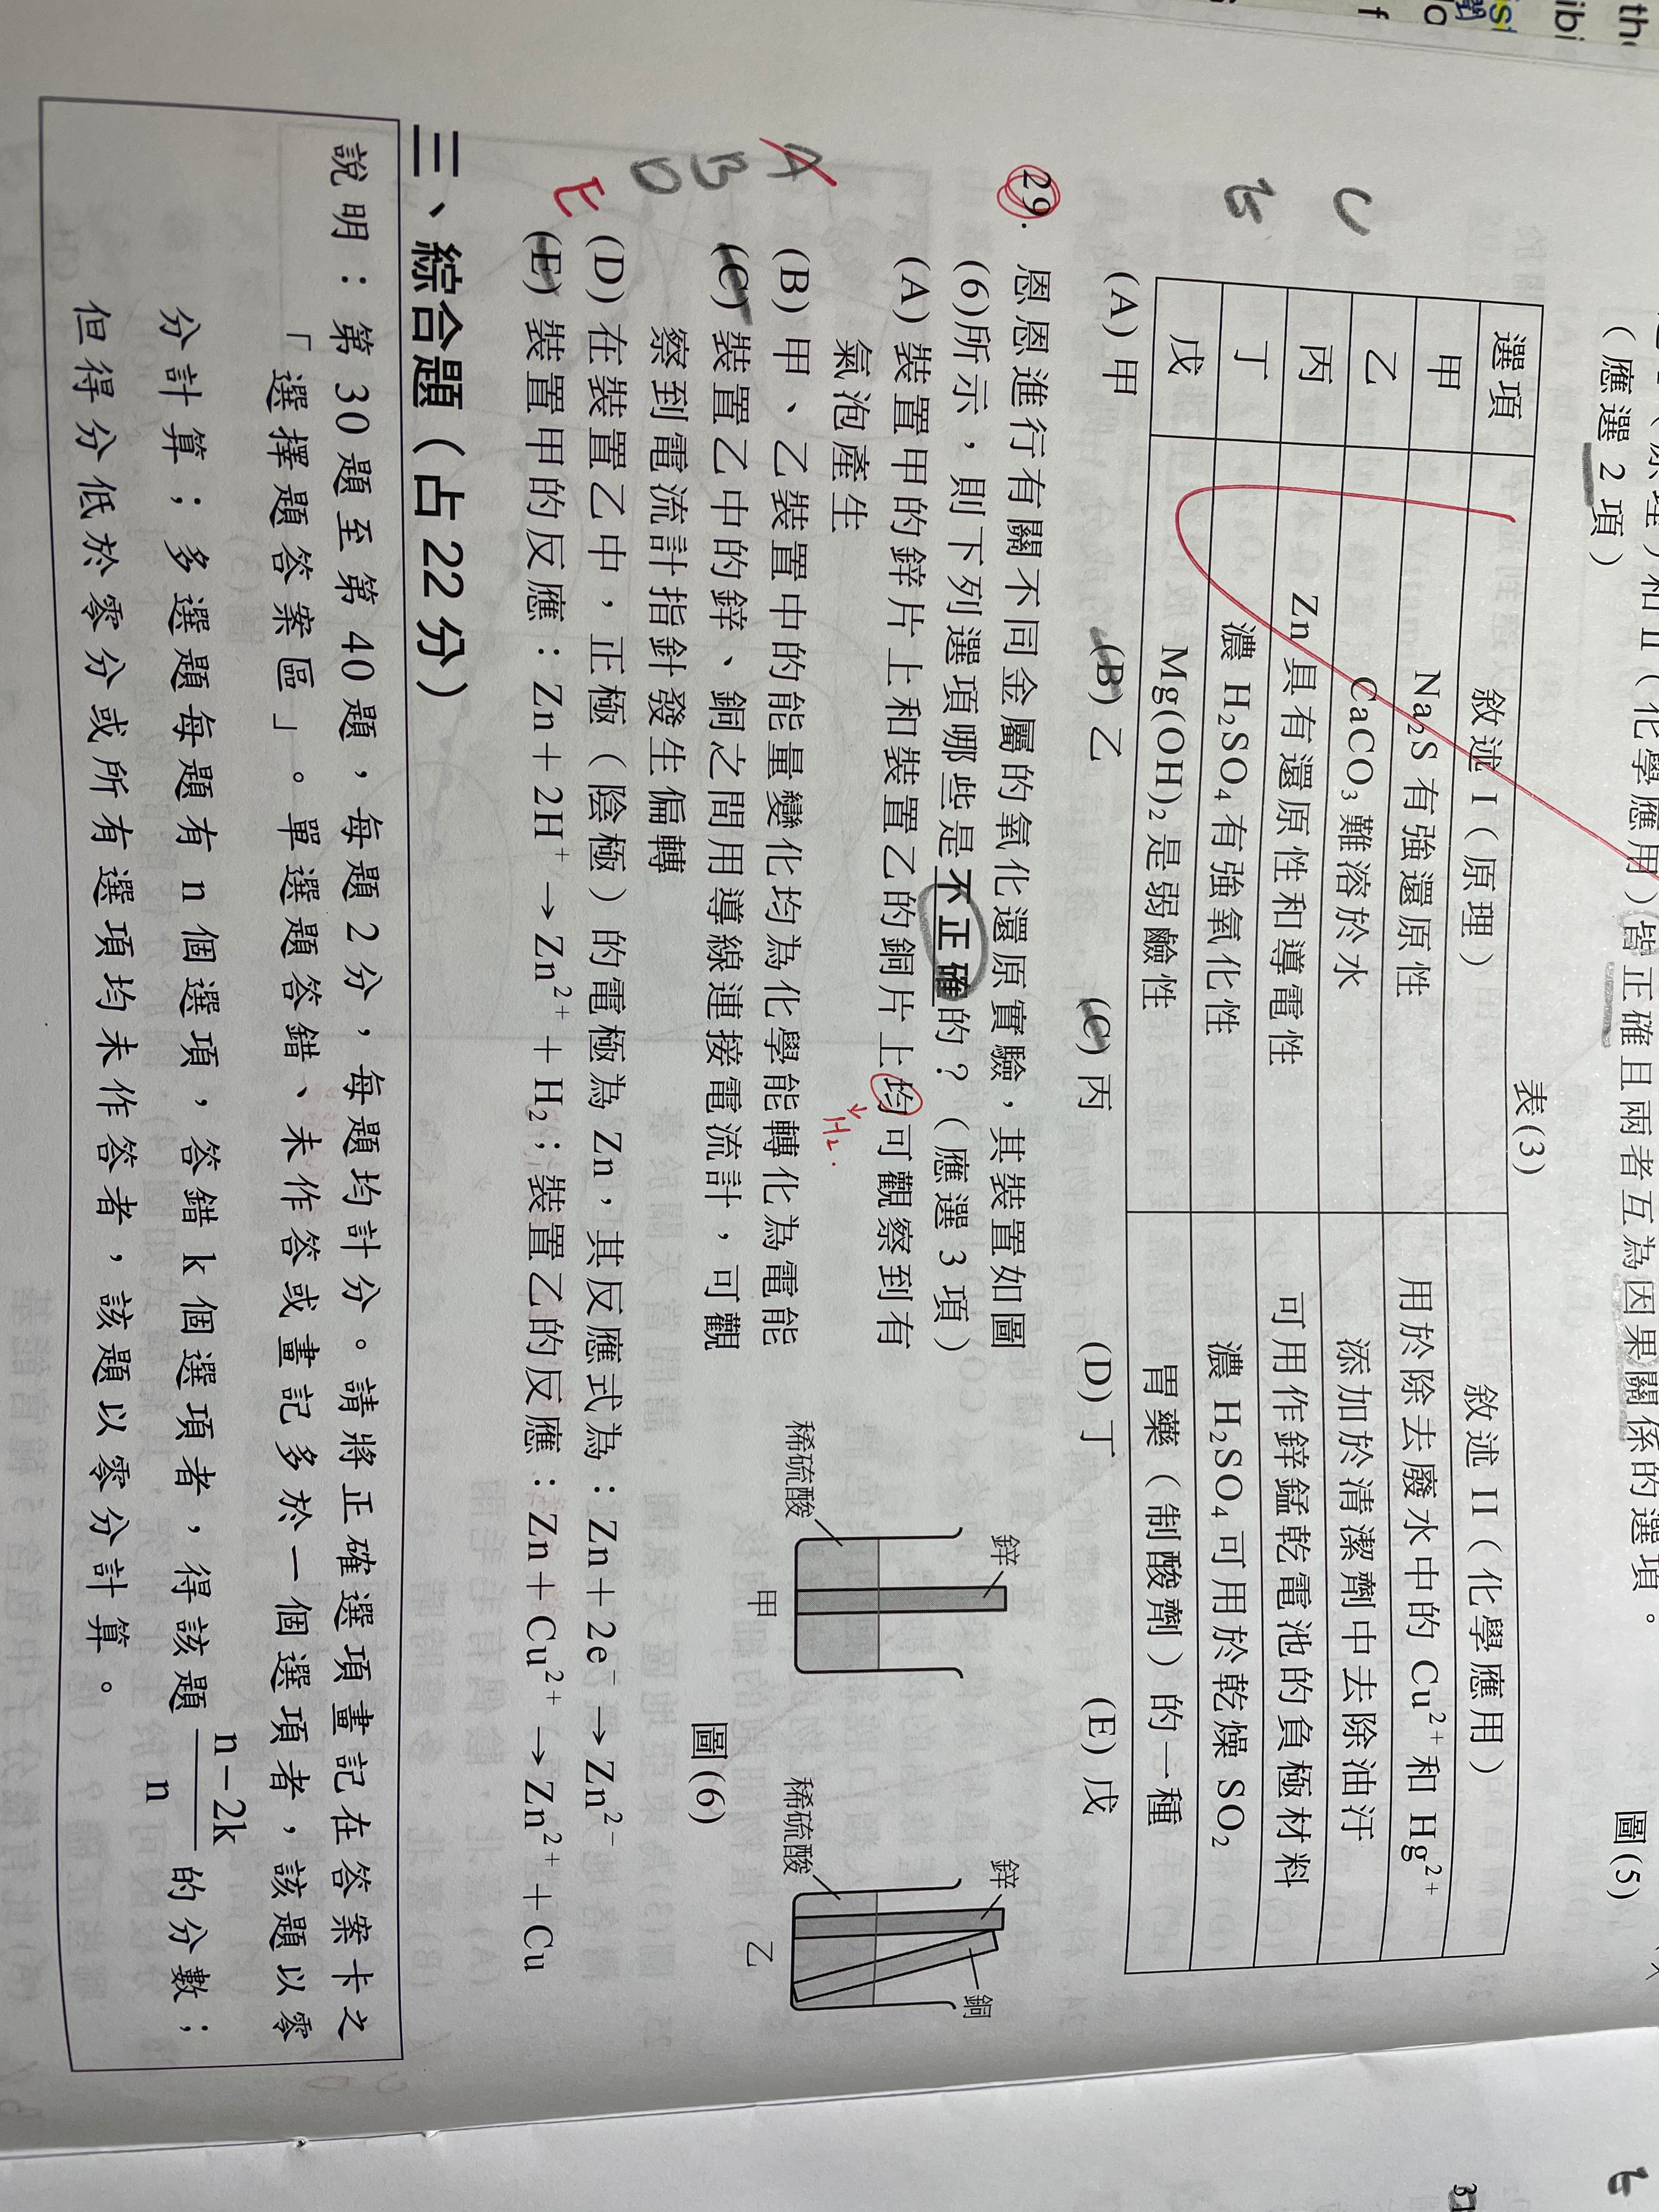 （應選 2 項）
和 II（化學應用）皆正確且兩者互為因果關係的選項。
圖(5)
表(3)
選項 敘述 I（原理） 敘述 II（化學應用）
甲 Na₂S 有強還原性 用於除去廢水中的 Cu²⁺ 和 Hg²⁺
乙 CaCO₃ 難溶於水 添加於清潔劑中去除油汙
丙 Zn 具有還原性和導電性 可用作鋅錳乾電池的負極材料
丁 濃 H₂SO₄ 有強氧化性 濃 H₂SO₄ 可用於乾燥 SO₂
戊 Mg(OH)₂ 是弱鹼性 胃藥（制酸劑）的一種
(A) 甲 (B) 乙 (C) 丙 (D) 丁 (E) 戊
C
29. 恩恩進行有關不同金屬的氧化還原實驗，其裝置如圖
(6)所示，則下列選項哪些是不正確的？（應選 3 項）
(A) 裝置甲的鋅片上和裝置乙的銅片上均可觀察到有
氣泡產生
↓H₂.
(B) 甲、乙裝置中的能量變化均為化學能轉化為電能
(C) 裝置乙中的鋅、銅之間用導線連接電流計，可觀
察到電流計指針發生偏轉
(D) 在裝置乙中，正極（陰極）的電極為 Zn，其反應式為：Zn＋2e⁻→Zn²⁻
(E) 裝置甲的反應：Zn＋2H⁺→Zn²⁺＋H₂；裝置乙的反應：Zn＋Cu²⁺→Zn²⁺＋Cu
A
B
D
E
鋅
稀硫酸
甲
鋅
銅
稀硫酸
乙
圖(6)
三、綜合題（占 22 分）
說明：第 30 題至第 40 題，每題 2 分，每題均計分。請將正確選項畫記在答案卡之
「選擇題答案區」。單選題答錯、未作答或畫記多於一個選項者，該題以零
分計算；多選題每題有 n 個選項，答錯 k 個選項者，得該題 (n－2k)/n 的分數；
但得分低於零分或所有選項均未作答者，該題以零分計算。